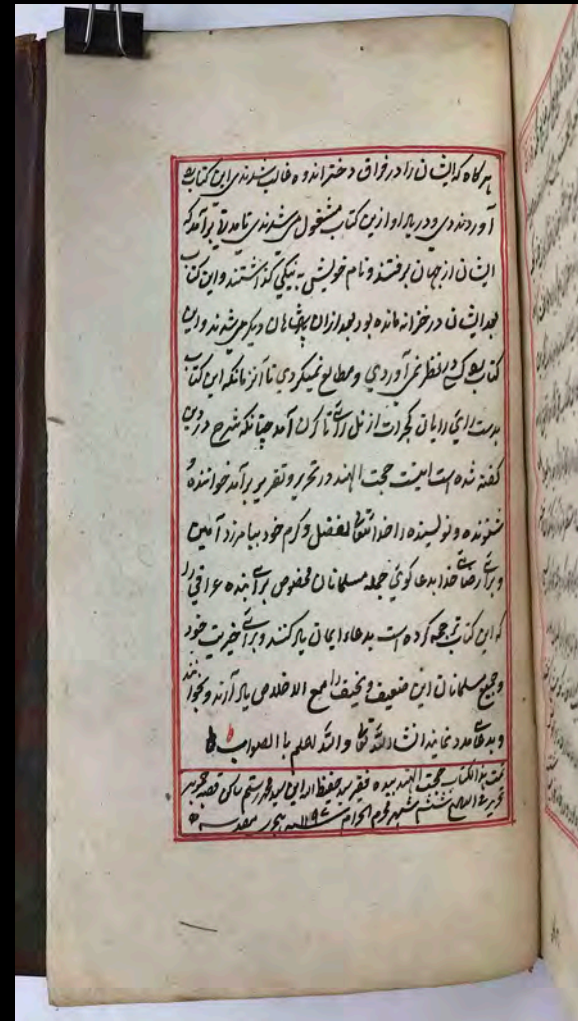 هرگاه که ایشان را در فراق دختر اندوه غالب شدندی این کتاب
آوردندی و در بازار ازین کتاب مشغول می شدندی تا مدتی برآمد که
ایشان از جهان برفتند و نام خویش به نیکی گذاشتند و این کتاب
بعد ایشان در خزانه مانده بود بعد ازان پادشاهان دیگر می شدند و این
کتاب کسی در نظر نمی آوردی و مطالع نمیکردی تا آنزمانکه این کتاب
بدست رای رایان گجرات از نل رای تا کرن آمد چنانکه شرح در زین
گفته شده است اینست حجت الهند در تحریر و تقریر برآمد خواننده و
شنونده و نویسنده را خدا تعالی بفضل و کرم خود بیامرزد آمین
و برای رضای خدا بدعا گوی جمله مسلمانان مخصوص برای بنده عراقی را
که این کتاب ترجمه کرده است بدعاء ایمان یاد کنند و برای خیریت خود
و جمیع مسلمانان این ضعیف و نحیف را مع الاخلاص یاد آرند و بخوانند
و بدعای مدد نمایند انشاء الله تعالی والله اعلم باالصواب
تمت هذا الکتاب حجت الهند بیده فقیر سید حفیظ الله ابن سید محمد رستم ساکن قصبه
تحریر فی التاریخ ششم شهر محرم الحرام سنه ۱۱۹۷ هجری مقدسه